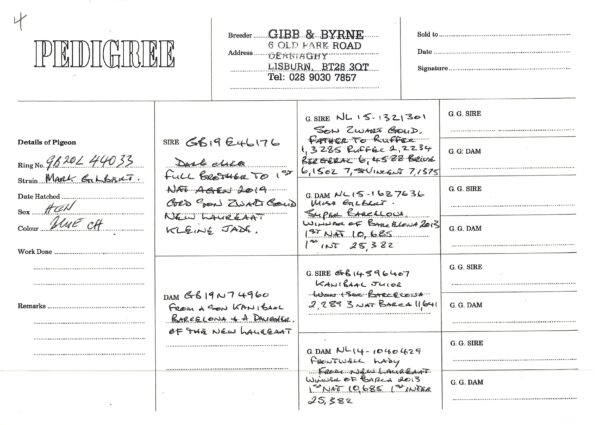 4
PEDIGREE
Breeder GIBB & BYRNE
Address 6 OLD PARK ROAD
DERRIAGHY
LISBURN, BT28 3QT
Tel: 028 9030 7857
Sold to
Date
Signature
Details of Pigeon
Ring No. GB20L 44033
Strain MARK GILBERT.
Date Hatched
Sex HEN
Colour BLUE CH
Work Done
Remarks
SIRE GB19E46176
DARK CHER
FULL BROTHER TO 1ST
NAT AGEN 2019
GRD SON ZWART GOUD
NEW LAUREAAT
KLEINE JADE.
DAM GB19N74960
FROM A SON KANIBAAL
BARCELONA & A DAUGHTER
OF THE NEW LAUREAAT
G. SIRE NL15-1321301
SON ZWART GOUD.
FATHER TO RUFFEC
1,3285 RUFFEC 2,2234
BERGERAC 6,4588 BRIVE
6,1502 7, ST VINCENT 7,1575
G. DAM NL15-1627636
MISS GILBERT.
SUPER BARCELONA.
WINNER OF BARCELONA 2013
1ST NAT 10,685
1ST INT 25,382
G. SIRE GB14S96407
KANIBAAL JUIOR
BARCELONA
2,2893 NAT BARCA 11,641
G. DAM NL14-1040429
FRONTWELL LADY
FROM NEW LAUREAAT
WINNER OF BARCA 2013
1ST NAT 10,685 1ST INTER
25,382
G. G. SIRE
G. G. DAM
G. G. SIRE
G. G. DAM
G. G. SIRE
G. G. DAM
G. G. SIRE
G. G. DAM